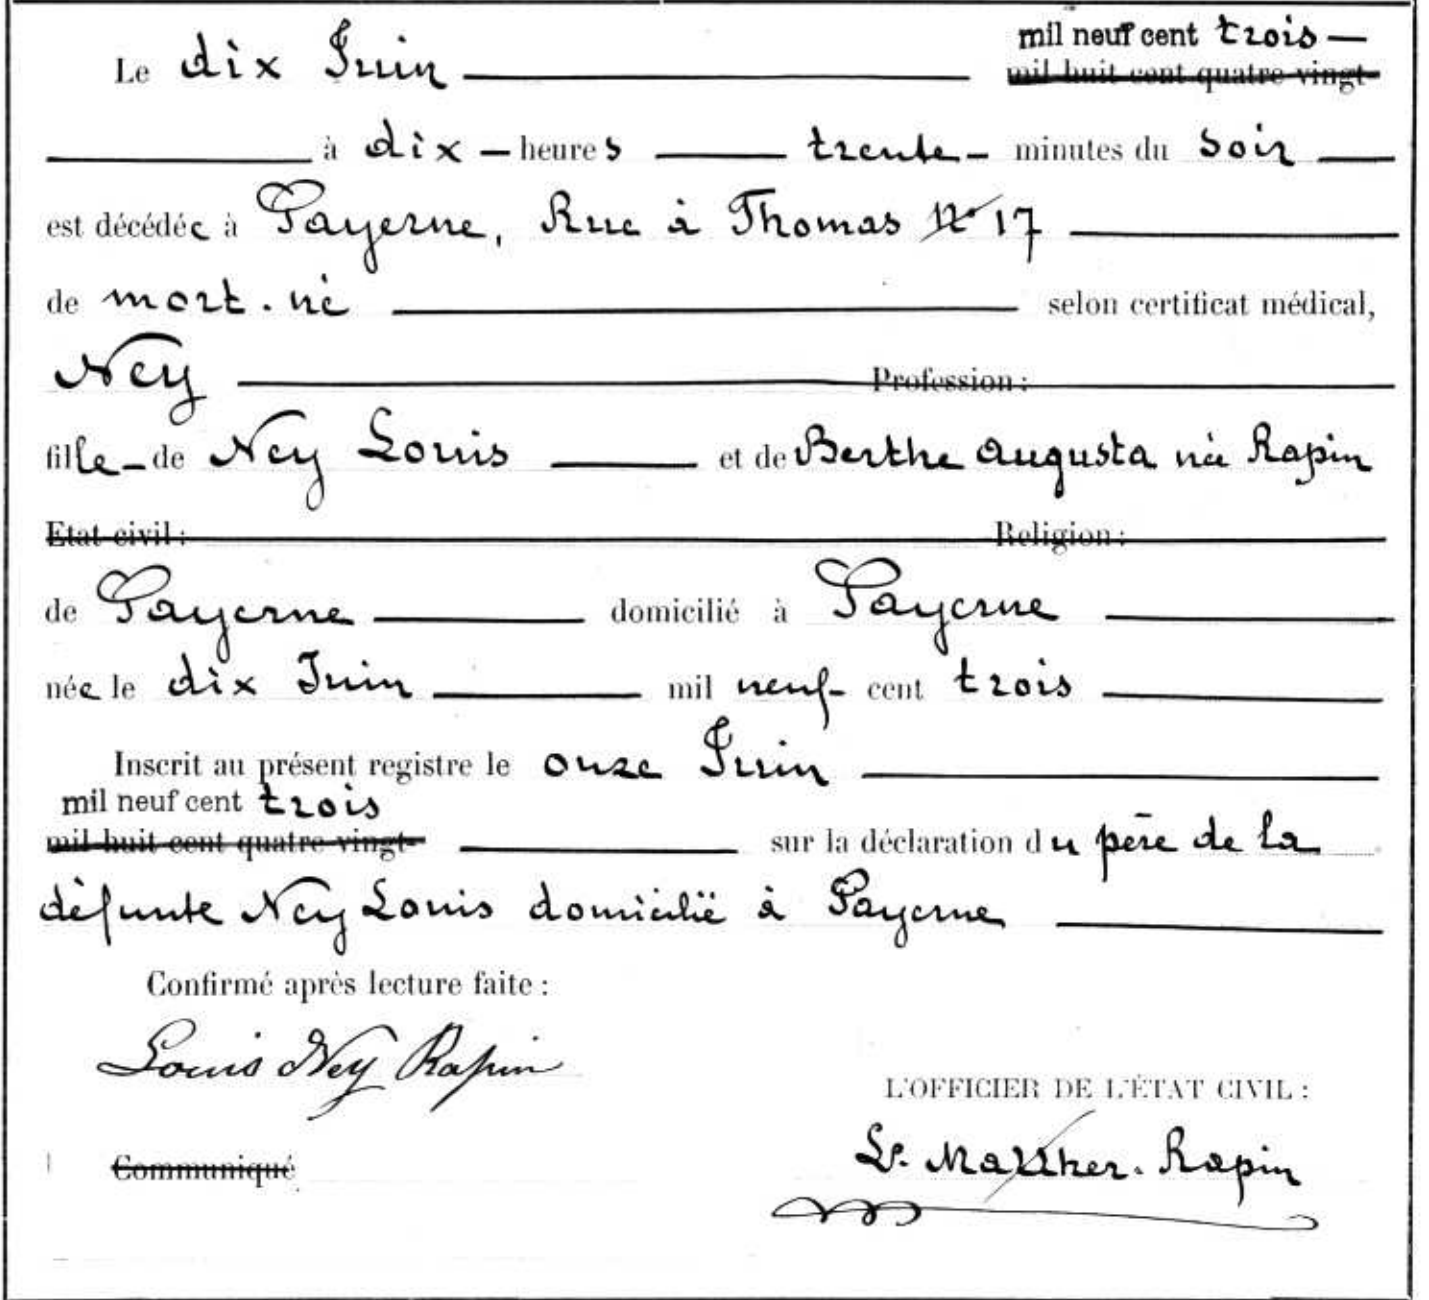 mil neuf cent trois —
Le dix Juin mil huit cent quatre-vingt-
à dix – heures trente – minutes du soir
est décédée à Payerne, Rue à Thomas No 17
de mort-né selon certificat médical,
Ney Profession :
fille – de Ney Louis et de Berthe Augusta née Rapin
Etat civil : Religion :
de Payerne domicilié à Payerne
née le dix Juin mil neuf cent trois
Inscrit au présent registre le onze Juin
mil neuf cent trois
mil huit cent quatre-vingt- sur la déclaration du père de la
défunte Ney Louis domicilié à Payerne
Confirmé après lecture faite :
Louis Ney Rapin
L'OFFICIER DE L'ÉTAT CIVIL :
Rapin
Communiqué